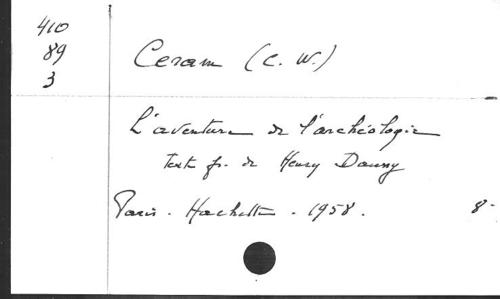 410
89
3
Ceram (C. W.)
L'aventure de l'archéologie
text fr. de Henry Daussy
Paris - Hachette - 1958.
8-